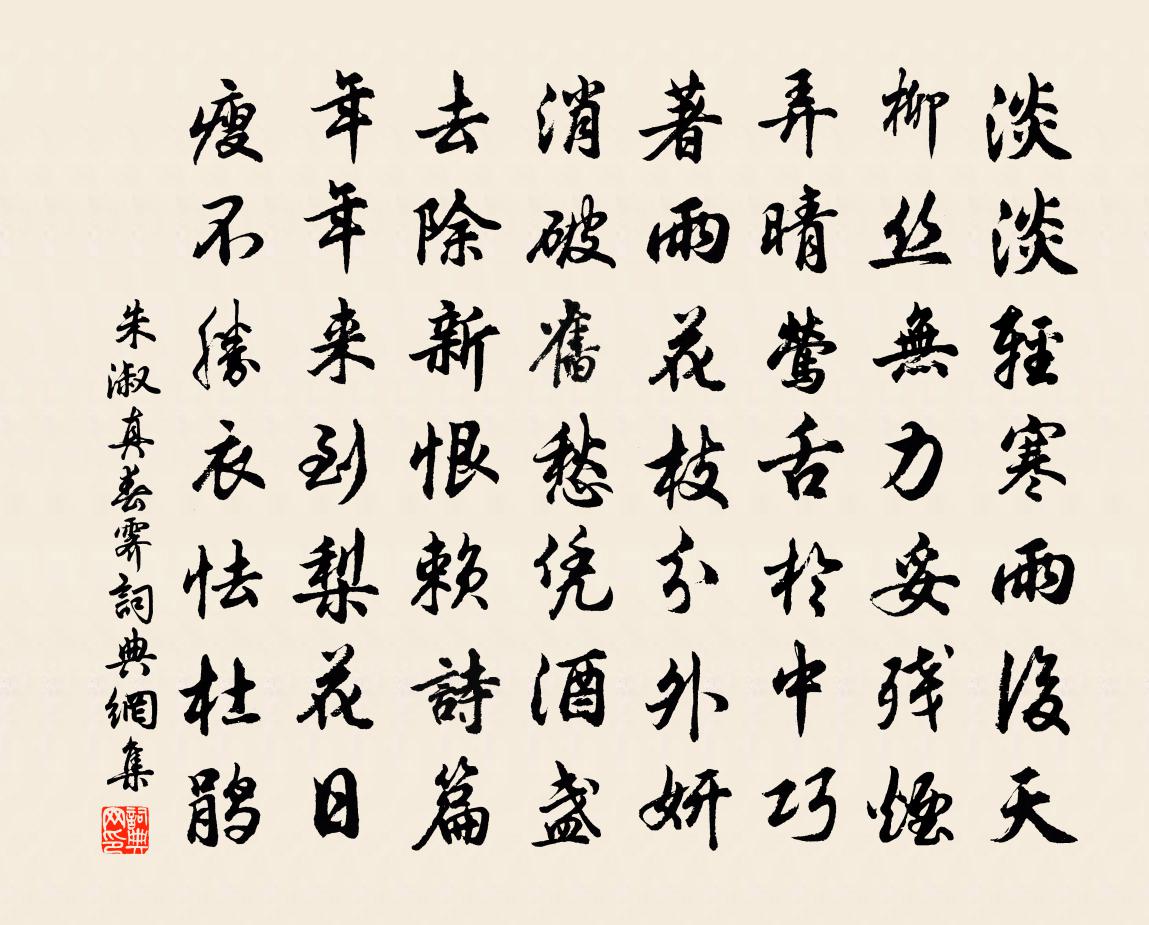 淡淡輕寒雨後天
柳丝無力妥残煙
弄晴鶯舌於中巧
著雨花枝分外妍
消破舊愁凭酒盏
去除新恨赖詩篇
年年来到梨花日
瘦不勝衣怯杜鹃
朱淑真春霽詞典網集
詞典网印